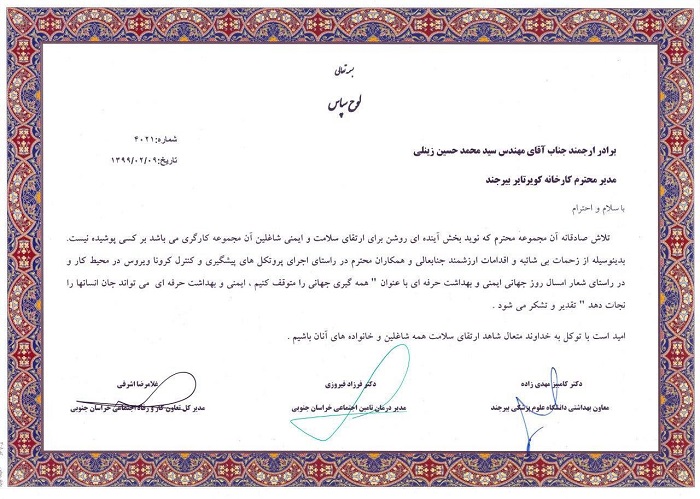 بسمه تعالی
لوح سپاس
شماره: ۴۰۲۱
تاریخ: ۱۳۹۹/۰۲/۰۹
برادر ارجمند جناب آقای مهندس سید محمد حسین زینلی
مدیر محترم کارخانه کویرتایر بیرجند
با سلام و احترام
تلاش صادقانه آن مجموعه محترم که نوید بخش آینده ای روشن برای ارتقای سلامت و ایمنی شاغلین آن مجموعه کارگری می باشد بر کسی پوشیده نیست.
بدینوسیله از زحمات بی شائبه و اقدامات ارزشمند جنابعالی و همکاران محترم در راستای اجرای پروتکل های پیشگیری و کنترل کرونا ویروس در محیط کار و
در راستای شعار امسال روز جهانی ایمنی و بهداشت حرفه ای با عنوان " همه گیری جهانی را متوقف کنیم ، ایمنی و بهداشت حرفه ای می تواند جان انسانها را
نجات دهد " تقدیر و تشکر می شود .
امید است با توکل به خداوند متعال شاهد ارتقای سلامت همه شاغلین و خانواده های آنان باشیم .
دکتر کامبیز مهدی زاده
معاون بهداشتی دانشگاه علوم پزشکی بیرجند
دکتر فرزاد فیروزی
مدیر درمان تامین اجتماعی خراسان جنوبی
غلامرضا اشرفی
مدیر کل تعاون کار و رفاه اجتماعی خراسان جنوبی